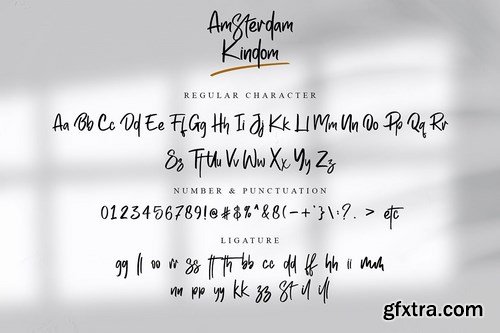 Amsterdam
Kindom
REGULAR CHARACTER
Aa Bb Cc Dd Ee Ff Gg Hh Ii Jj Kk Ll Mm Nn Oo Pp Qq Rr
Ss Tt Uu Vv Ww Xx Yy Zz
NUMBER & PUNCTUATION
0123456789!@#$%^&8(-+'}\:?. > etc
LIGATURE
gg ll oo rr ss tt th bb cc dd ff hh ii mm
nn pp yy kk zz st il ill
gfxtra.com